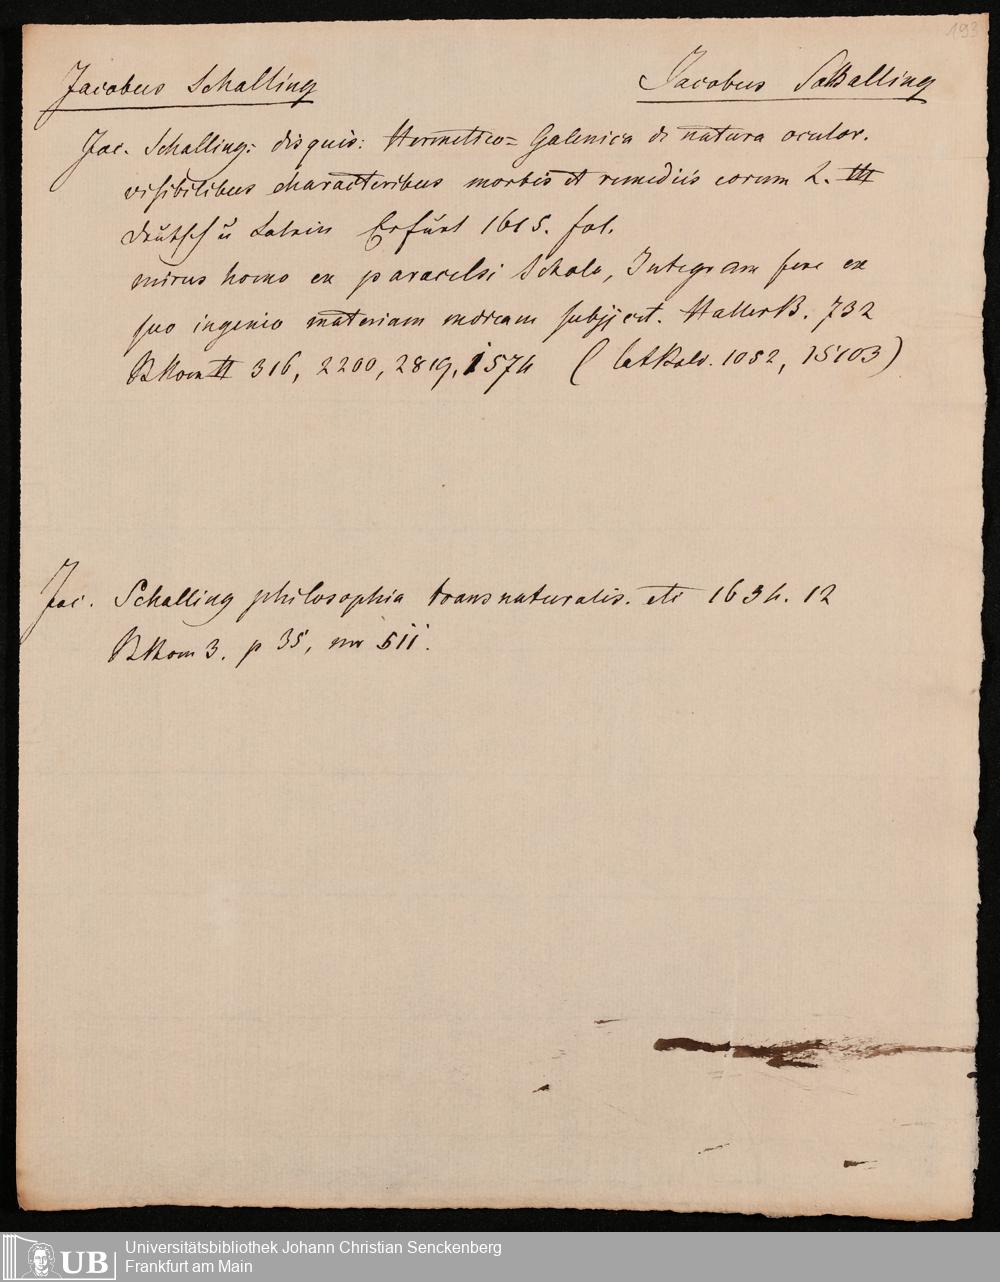 193
Jacobus Schalling Jacobus Schalling
Jac. Schalling: disquis: Hermetico= Galenica de natura oculor.
visibilibus characteribus morbis et remediis eorum L. III
deutsch u Latein Erfurt 1615. fol.
mirus homo ex paracelsi Schola, Integram fere ex
suo ingenio materiam medicam subjicit. Haller B. 732
II 316, 2200, 2819, 1574 ( 1052, 15103)
Jac. Schalling philosophia transnaturalis. etc 1634. 12
3. p 35, nr 511.
UB
Universitätsbibliothek Johann Christian Senckenberg
Frankfurt am Main